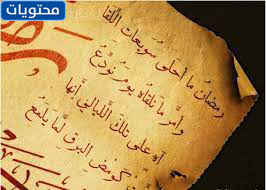 محتويات
رمضان ما أحلى سويعات اللقا
وأمر ما تلقاه يوم تودع
آه على تلك الليالي إنها
كومض البرق لما يلمع